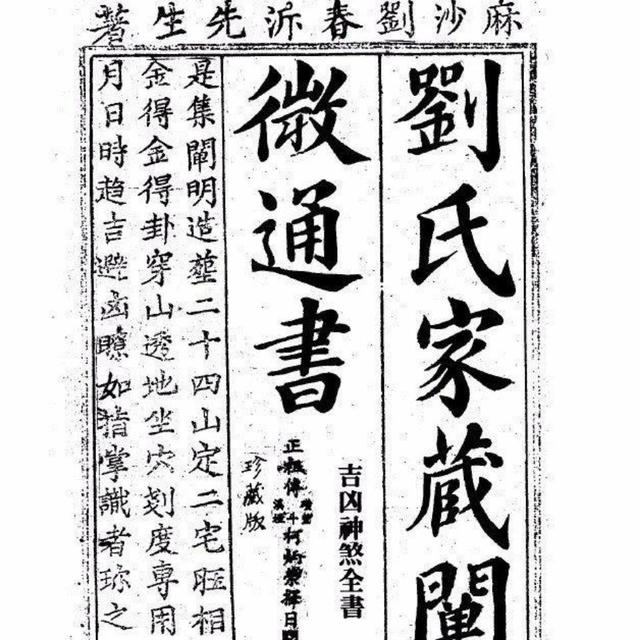 麻沙劉春沂先生著
劉氏家藏闡
微通書
吉凶神煞全書
正 傳
珍藏版
是集闡明造塟二十四山定二宅 相
金得金得卦穿山透地坐穴刻度專用
月日時趋吉避凶瞭如指掌識者珎之